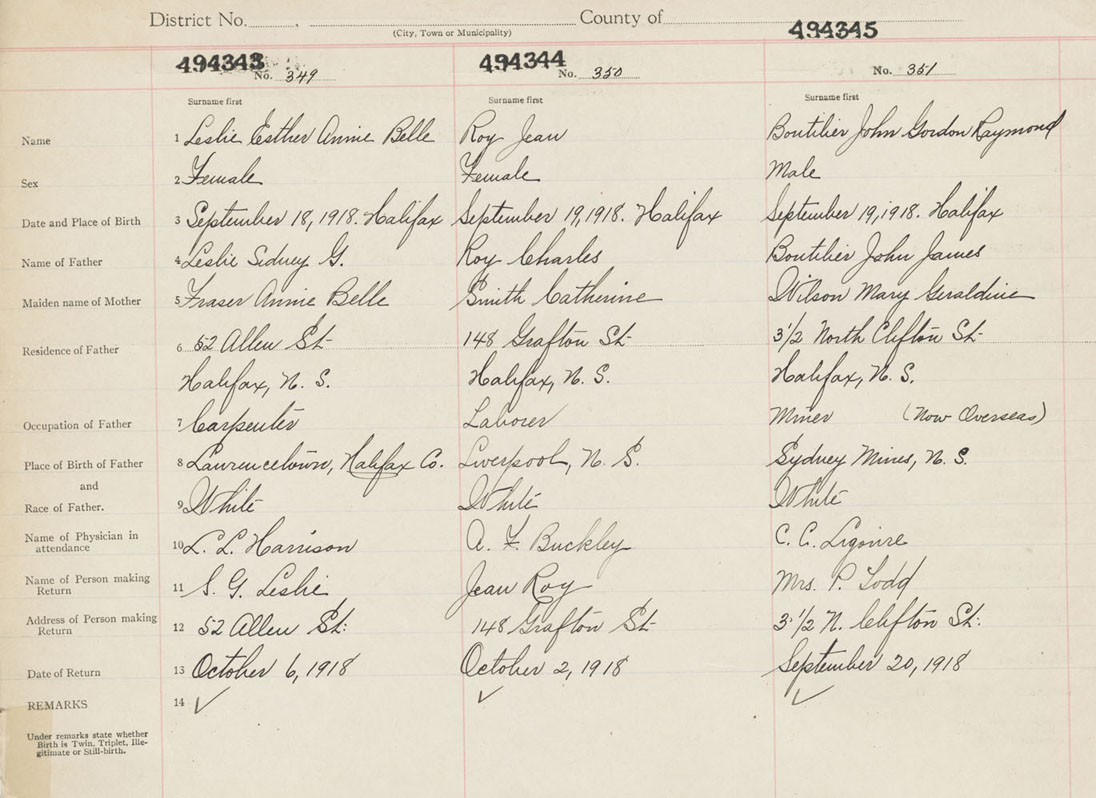 District No. , County of
(City, Town or Municipality)
494343 494344 494345
No. 349 No. 350 No. 351
Surname first Surname first Surname first
Name 1 Leslie Esther Annie Belle Roy Jean Boutilier John Gordon Raymond
Sex 2 Female Female Male
Date and Place of Birth 3 September 18, 1918. Halifax September 19, 1918. Halifax September 19, 1918. Halifax
Name of Father 4 Leslie Sidney G. Roy Charles Boutilier John James
Maiden name of Mother 5 Fraser Annie Belle Smith Catherine Wilson Mary Geraldine
Residence of Father 6 52 Allen St. 148 Grafton St. 3 1/2 North Clifton St.
Halifax, N. S. Halifax, N. S. Halifax, N. S.
Occupation of Father 7 Carpenter Laborer Miner (Now Overseas)
Place of Birth of Father 8 Lawrencetown, Halifax Co. Liverpool, N. S. Sydney Mines, N. S.
and
Race of Father. 9 White White White
Name of Physician in
attendance 10 L. L. Harrison A. F. Buckley C. C. Ligoure
Name of Person making
Return 11 S. G. Leslie Jean Roy Mrs. P. Todd
Address of Person making
Return 12 52 Allen St. 148 Grafton St. 3 1/2 N. Clifton St.
Date of Return 13 October 6, 1918 October 2, 1918 September 20, 1918
REMARKS 14 ✓ ✓ ✓
Under remarks state whether
Birth is Twin, Triplet, Ille-
gitimate or Still-birth.